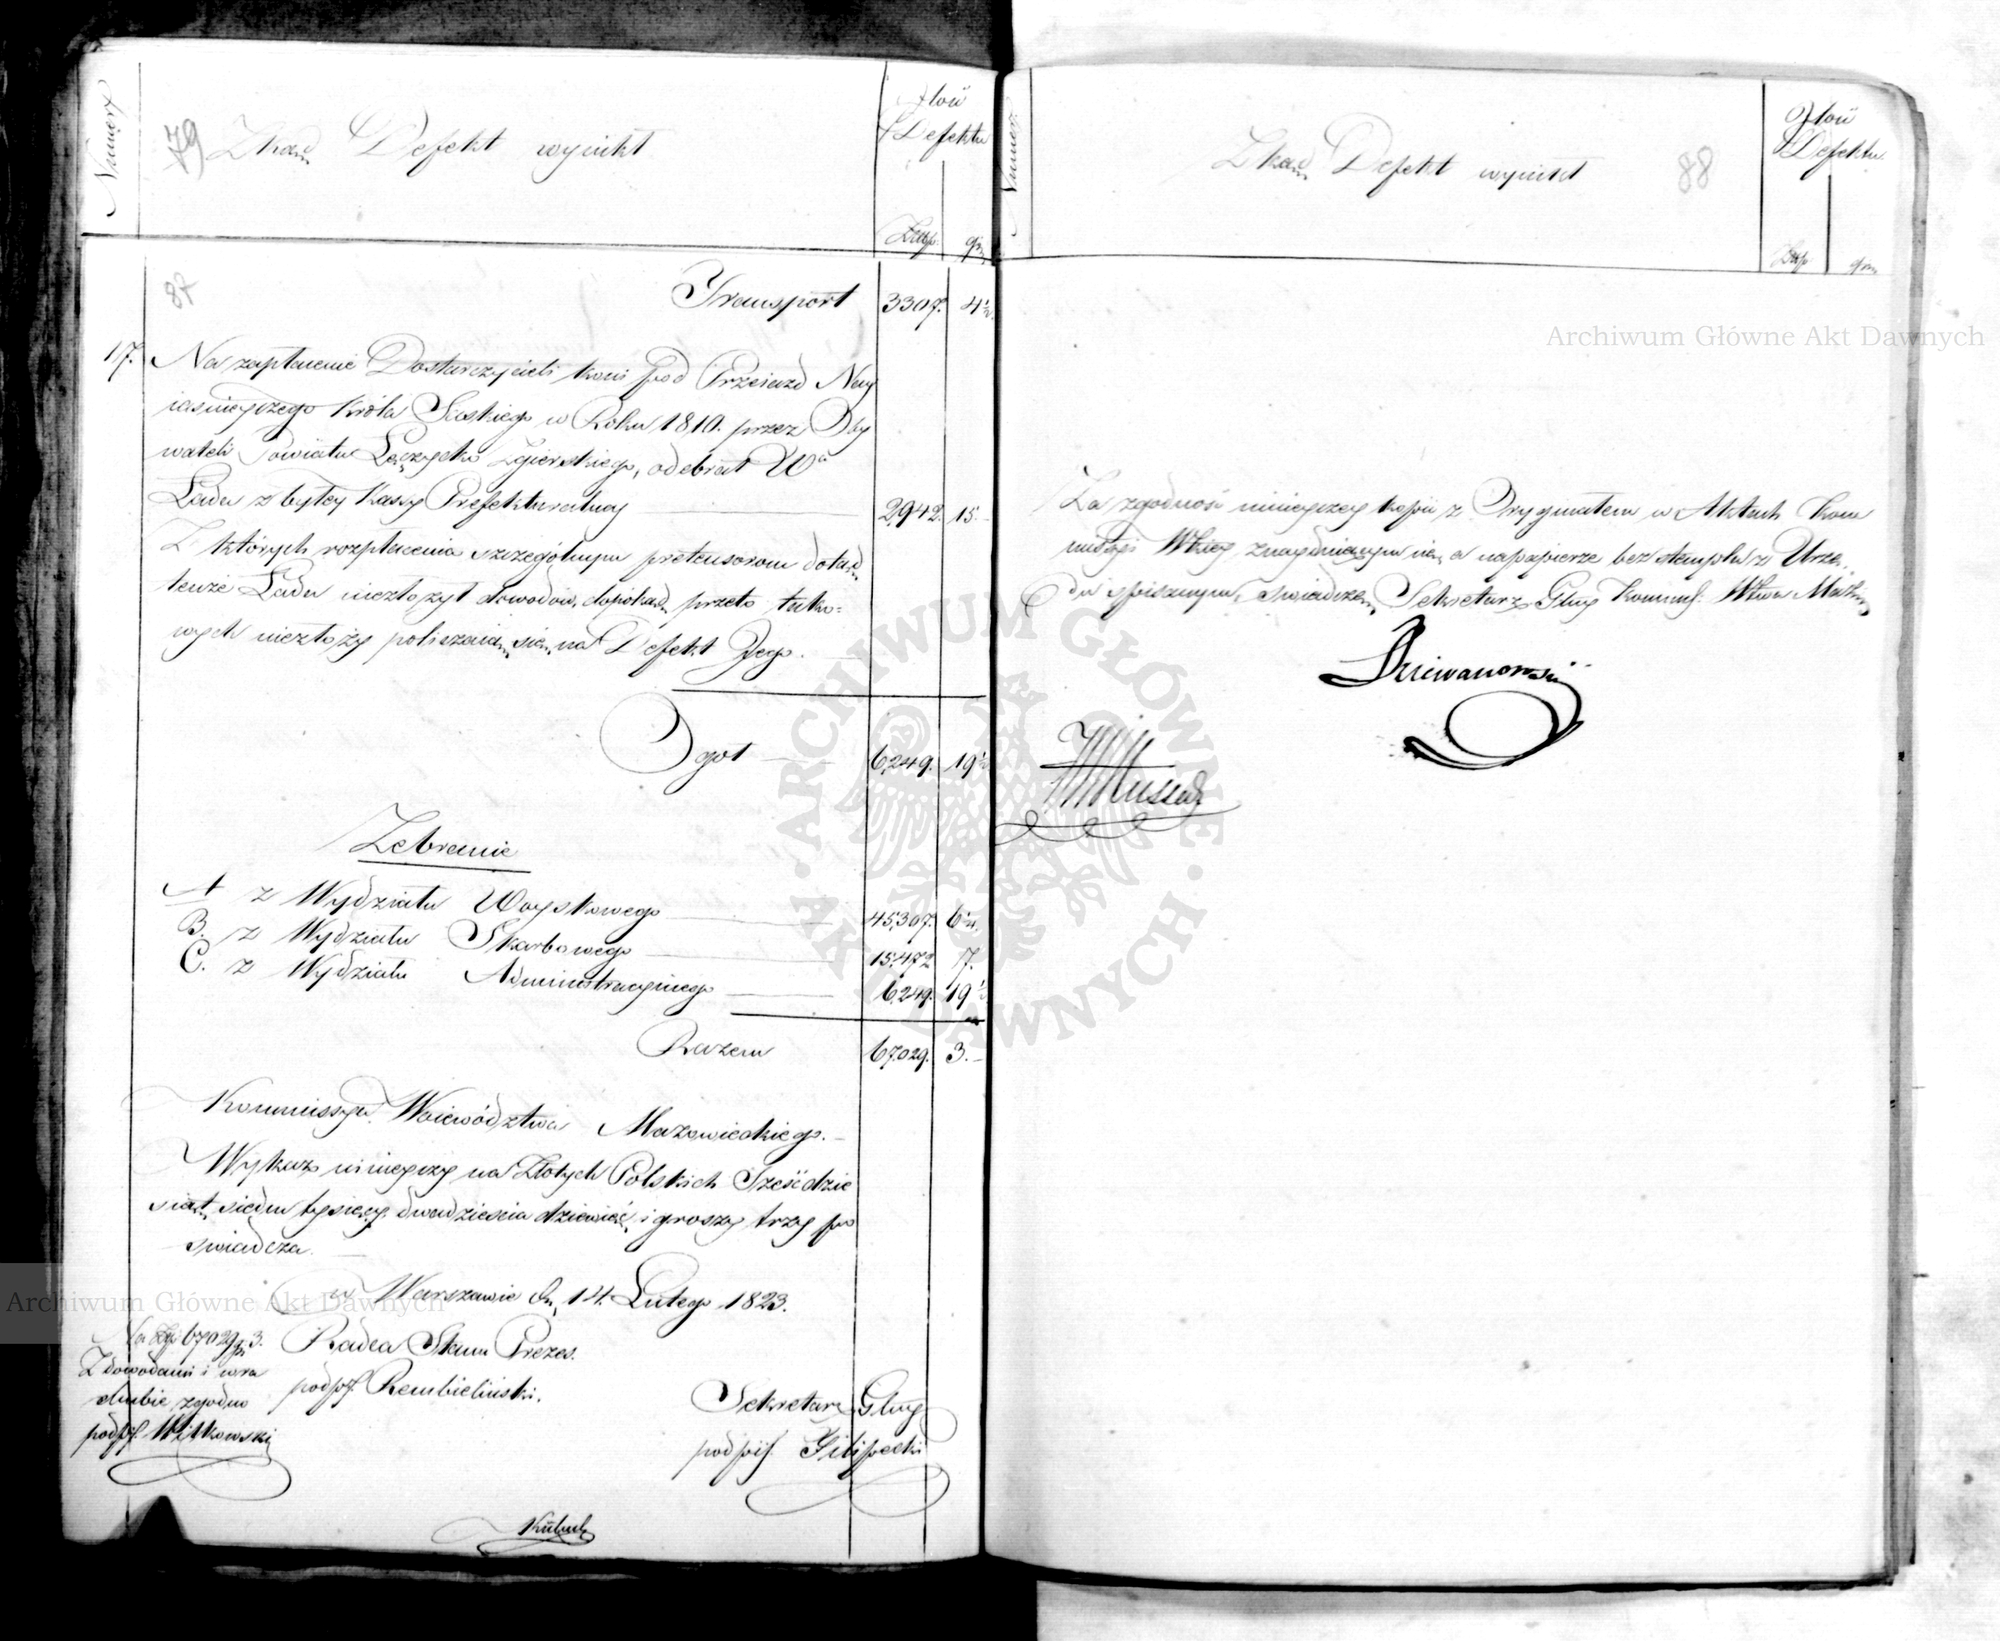 Numery
79 Zkąd Defekt wynikł
Ilość
Defektu
Złłp. gr.
87
Transport 3307. 4½.
17. Na zapłacenie Dostarczycieli koni pod Przeiazd Nay
iasnieyszego Króla Saskiego w Roku 1810. przez Oby
wateli Powiatu Łęczycko Zgierskiego, odebrał Wa
Lada z byłey Kassy Prefekturalney 2942. 15.
Z których rozpłacenia szczegółnym pretensorom dotąd
tenże Lada niezłożył dowodów, dopokąd przeto tako=
wych niezłoży policzaią się na Defekt Jego.
Ogół 6,249. 19½
Zebranie
A z Wydziału Woyskowego 45,307. 6½.
B. z Wydziału Skarbowego 15,472 7.
C. z Wydziału Administracyinego 6,249. 19½
Razem 67,029. 3.
Kommissya Woiewództwa Mazowieckiego.
Wykaz ninieyszy na Złotych Polskich Sześćdzie
siąt siedm tysięcy dwadzieścia dziewięć i groszy trzy po
świadcza.
w Warszawie dn. 14. Lutego 1823.
Na Złp 67029 gr 3.
Z dowodami i wra
chubie zgodno
podpis. Witkowski
Radca Stanu Prezes.
podpis. Rembieliński.
Sekretarz Głny
podpis. Filipecki
Numer.
Zkąd Defekt wynikł 88
Ilość
Defektu
Złłp gr.
Za zgodność ninieyszey kopii z Oryginałem w Aktach Kom
missyi Wkiey znayduiącym się, a na papierze bez stempla z Urzę
du spisanym, świadczę, Sekretarz Głny Kommis. Wtwa Maz
Dziewanowski
Archiwum Główne Akt Dawnych
Archiwum Główne Akt Dawnych
ARCHIWUM GŁÓWNE AKT DAWNYCH